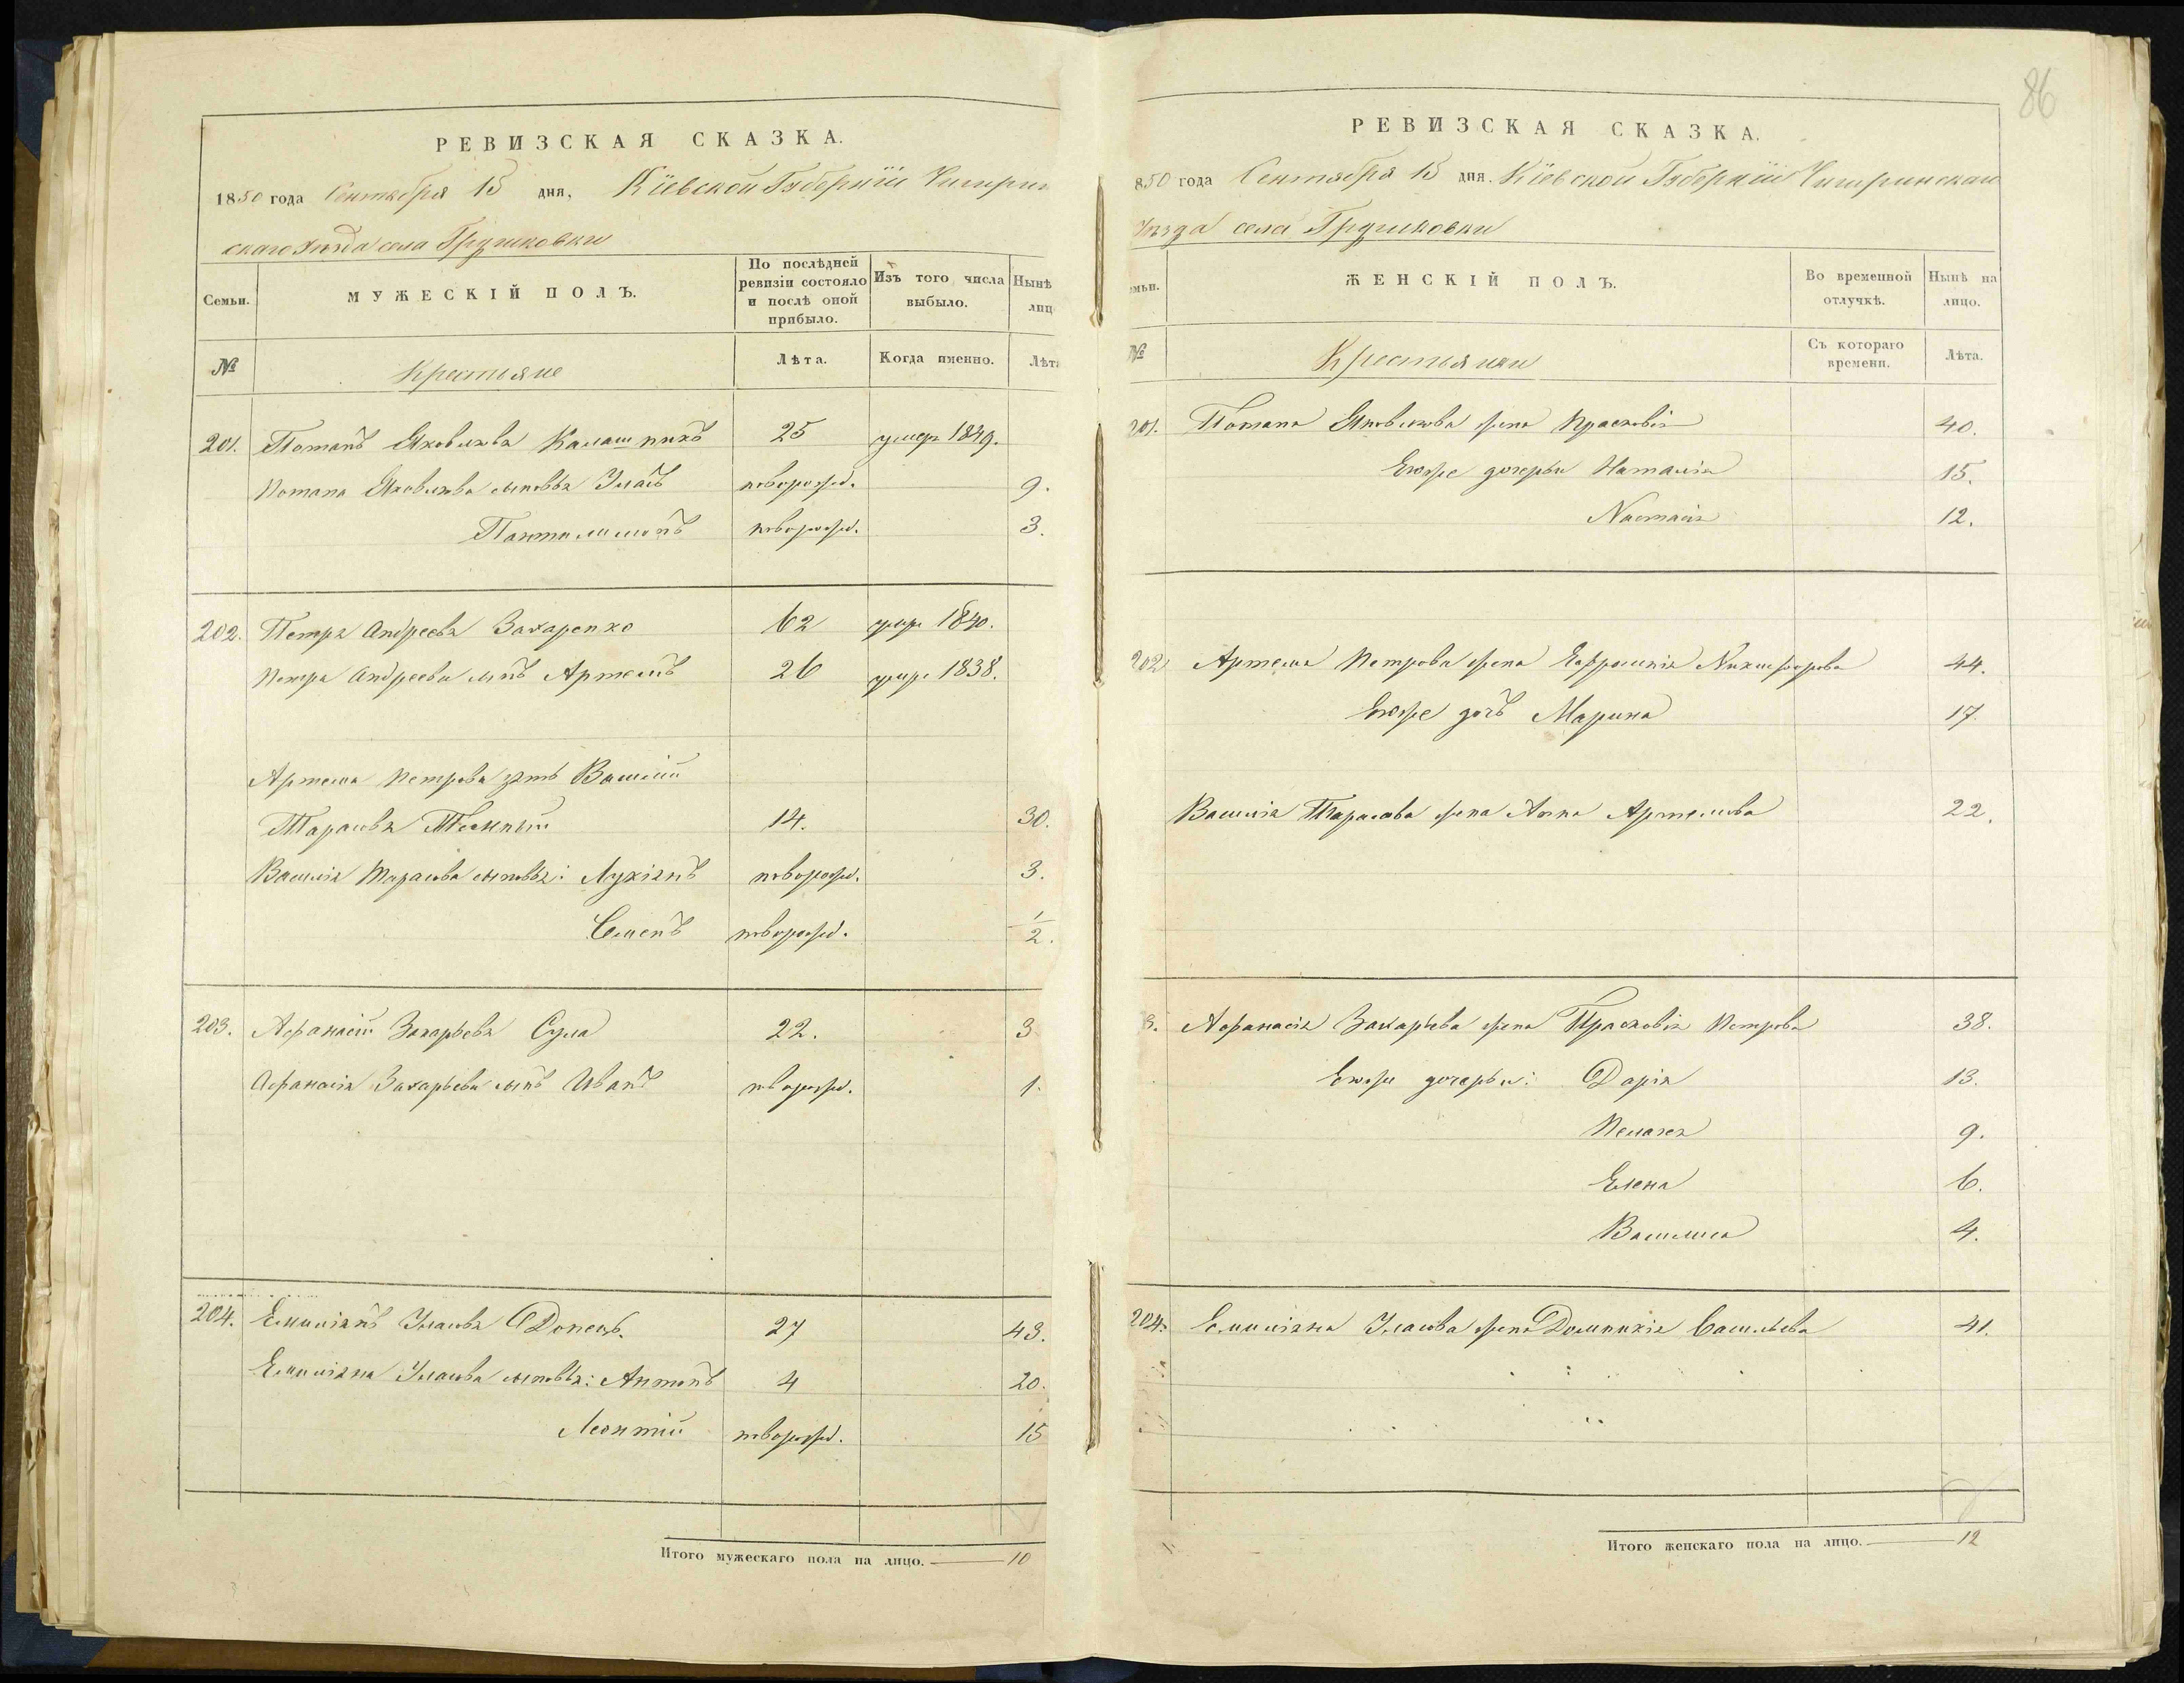 86
РЕВИЗСКАЯ СКАЗКА.
1850 года Сентября 15 дня, Кіевской Губерніи Чигирин
скаго Уезда села Грушковки
Семьи. МУЖЕСКІЙ ПОЛЪ. По послѣдней ревизіи состояло и послѣ оной прибыло. Изъ того числа выбыло. Нынѣ лиц
№ Крестьяне Лѣта. Когда именно. Лѣта
201. Потапъ Яковлевъ Калашникъ 25 умеръ 1849.
Потапа Яковлева сыновья Уласъ новорожд. 9.
Пантелимонъ новорожд. 3.
202. Петръ Андреевъ Захаренко 62 умеръ 1840.
Петра Андреева сынъ Артемъ 26 умеръ 1838.
Артема Петрова зять Василій
Тарасовъ 14. 30.
Василія Тарасова сыновья: Лукіянъ новорожд. 3.
Семенъ новорожд. 1/2.
203. Афанасій Захарьевъ Сула 22. 3
Афанасія Захарьева сынъ Иванъ новорожд. 1.
204. Емиліянъ Уласовъ Донецъ. 27 43.
Емиліяна Уласова сыновья: Антонъ 4 20.
Леонтій новорожд. 15
Итого мужескаго пола на лицо. 10
РЕВИЗСКАЯ СКАЗКА.
850 года Сентября 15 дня. Кіевской Губерніи Чигиринскаго
Уезда села Грушковки
емьи. ЖЕНСКІЙ ПОЛЪ. Во временной отлучкѣ. Нынѣ на лицо.
№ Крестьянки Съ котораго времени. Лѣта.
201. Потапа Яковлева жена Прасковія 40.
Егоже дочерьи Наталія 15.
Настасія 12.
202 Артема Петрова жена Ефросинія Никифорова 44.
Егоже дочь Марина 17.
Василія Тарасова жена Анна Артемова 22.
3. Афанасія Захарьева жена Прасковія Петрова 38.
Егоже дочерьи: Дарія 13.
Пелагея 9.
Елена 6.
Василиса 4.
204. Емиліяна Уласова жена Домникія Васильева 41.
Итого женскаго пола на лицо. 12